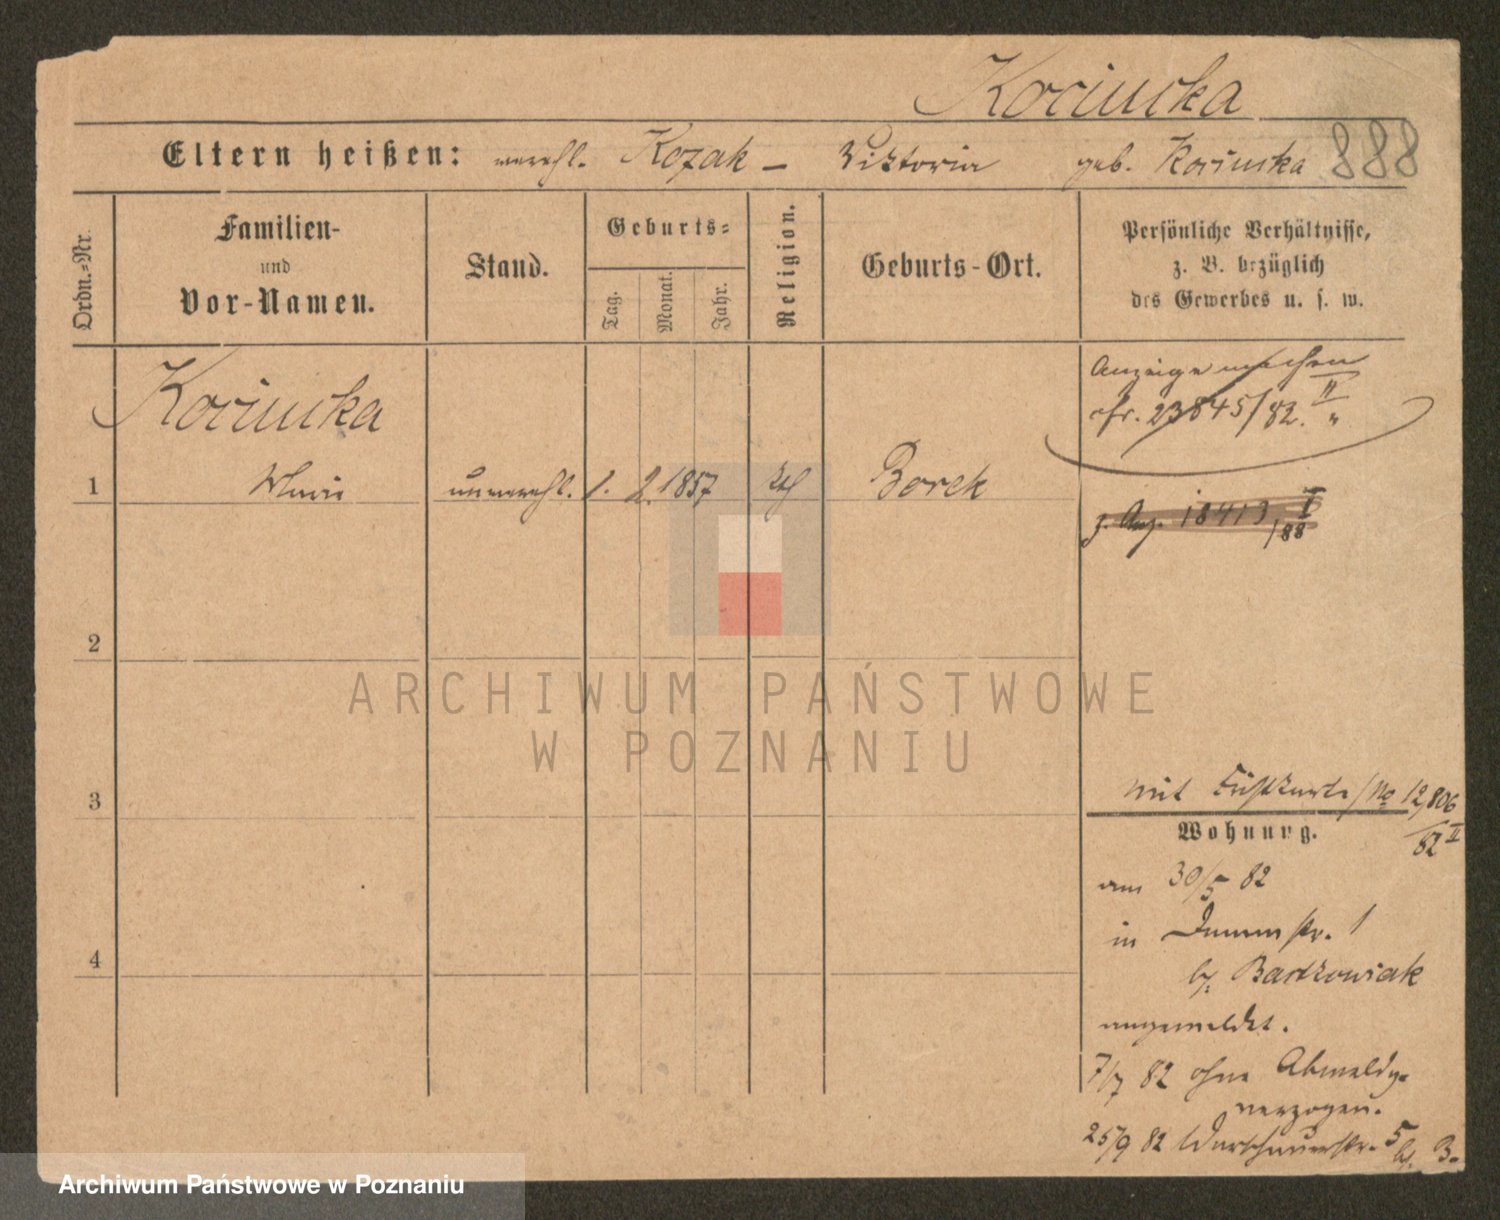 Kocinska
Eltern heißen: verehl. Kozak – Viktoria geb. Kocinska 888
Ordn.=Nr.
Familien-
und
Vor-Namen.
Stand.
Geburts=
Tag.
Monat.
Jahr.
Religion.
Geburts-Ort.
Persönliche Verhältnisse,
z. B. bezüglich
des Gewerbes u. s. w.
Kocinska
Anzeige machen
cfr. 23845/82. II
1 unverehl. 1. 2. 1857 Borek
z. Anz. 18413 I
/88
2
ARCHIWUM PAŃSTWOWE
W POZNANIU
3
mit No 12,806
82 II
Wohnung.
am 30/5 82
in Dammstr. 1
b. Bartkowiak
4
angemeldet.
7/7 82 ohne Abmeldg.
verzogen.
25/9 82 Warschauerstr. 5
b. B.
Archiwum Państwowe w Poznaniu